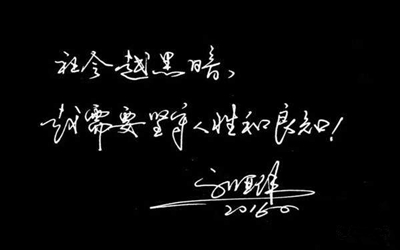 社会越黑暗、
越需要坚守人性和良知！
2016